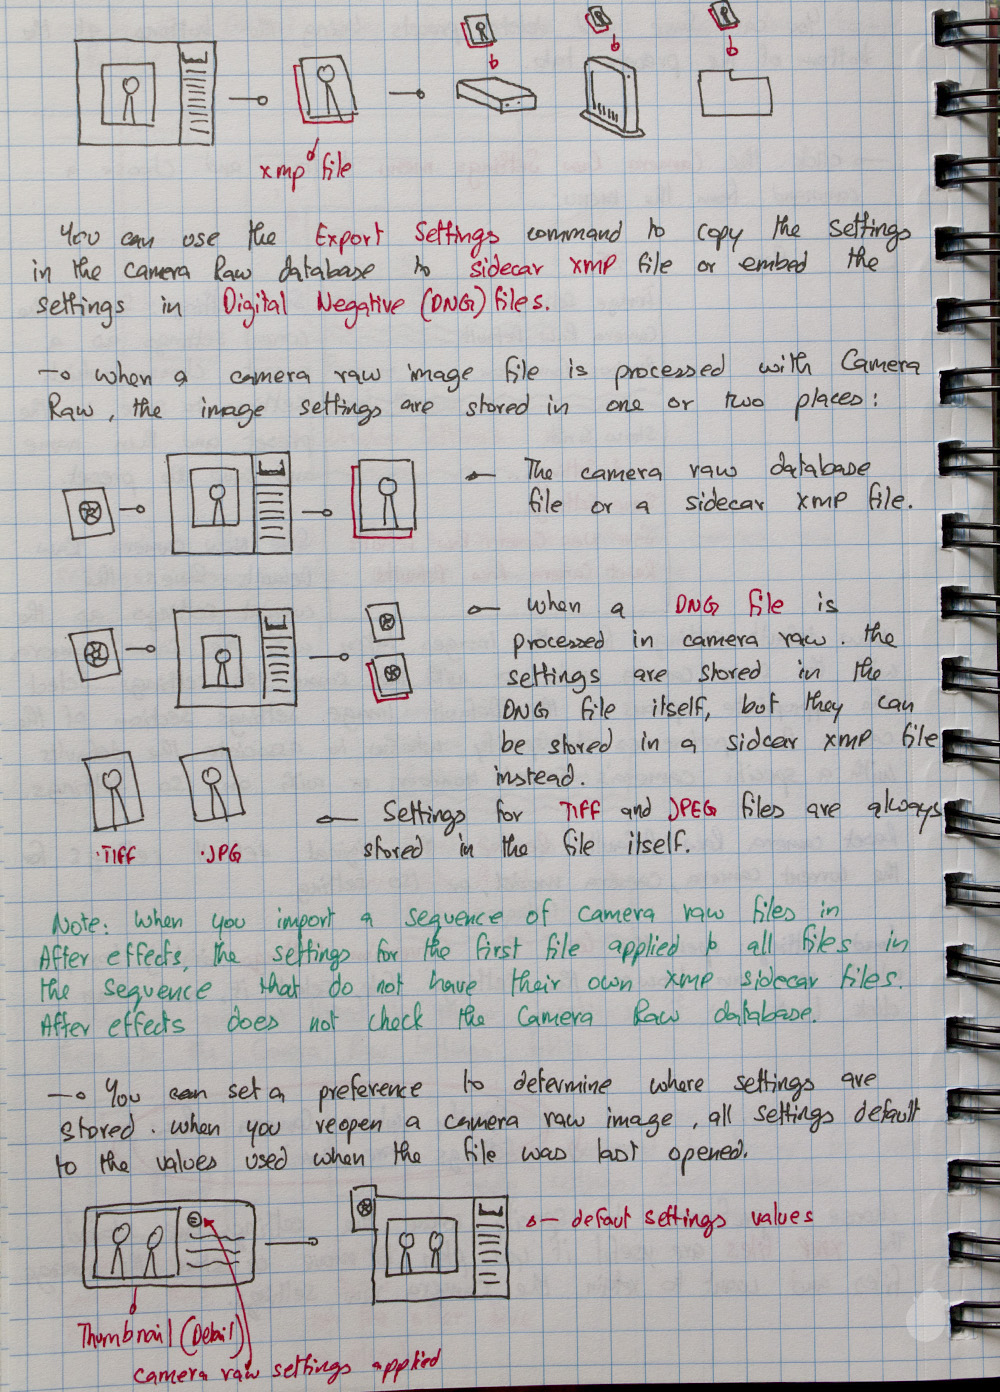 xmp file
You can use the Export Settings command to copy the settings
in the camera Raw database to sidecar xmp file or embed the
settings in Digital Negative (DNG) files.
→ when a camera raw image file is processed with Camera
Raw, the image settings are stored in one or two places:
The camera raw database
file or a sidecar xmp file.
when a DNG file is
processed in camera raw. the
settings are stored in the
DNG file itself, but they can
be stored in a sidcear xmp file
instead.
Settings for TIFF and JPEG files are always
stored in the file itself.
.TIFF .JPG
Note: When you import a sequence of camera raw files in
After effects, the settings for the first file applied to all files in
the sequence that do not have their own xmp sidecar files.
After effects does not check the Camera Raw database.
→ You can set a preference to determine where settings are
stored. when you reopen a camera raw image, all settings default
to the values used when the file was last opened.
defaut settings values
Thumbnail (Detail)
camera raw settings applied